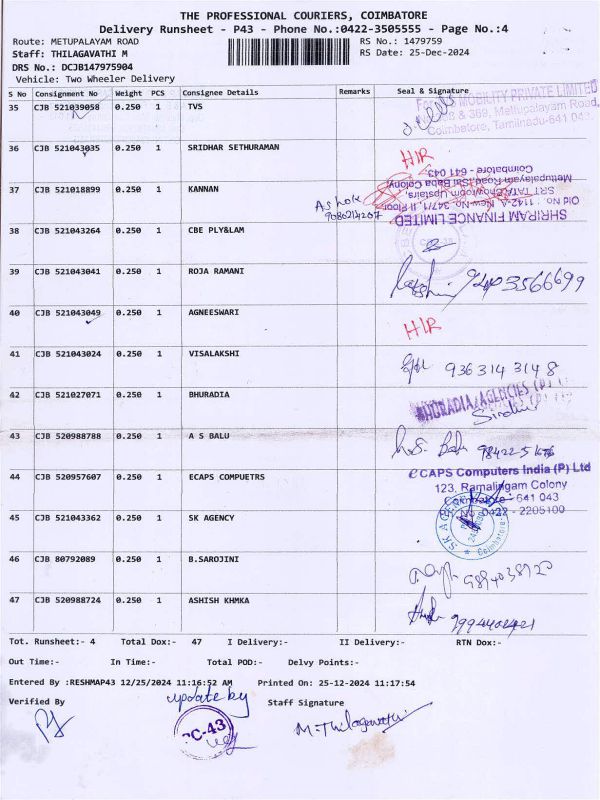 THE PROFESSIONAL COURIERS, COIMBATORE
Delivery Runsheet - P43 - Phone No.:0422-3505555 - Page No.:4
Route: METUPALAYAM ROAD RS No.: 1479759
Staff: THILAGAVATHI M RS Date: 25-Dec-2024
DRS No.: DCJB147975904
Vehicle: Two Wheeler Delivery
S No Consignment No Weight PCS Consignee Details Remarks Seal & Signature
35 CJB 521039058 0.250 1 TVS
MOBILITY PRIVATE LIMITED
& 369, Mettupalayam Road,
Coimbatore, Tamilnadu-641 043.
36 CJB 521043035 0.250 1 SRIDHAR SETHURAMAN H/R
37 CJB 521018899 0.250 1 KANNAN Ashok
9080214207
SHRIRAM FINANCE LIMITED
Old No.: 1142-A, New No. 347/1, II Floor,
SRT TATA Showroom Upstairs,
Mettupalayam Road, Sai Baba Colony,
Coimbatore - 641 043
38 CJB 521043264 0.250 1 CBE PLY&LAM
39 CJB 521043041 0.250 1 ROJA RAMANI 9403566699
40 CJB 521043049 0.250 1 AGNEESWARI H/R
41 CJB 521043024 0.250 1 VISALAKSHI 9363143148
42 CJB 521027071 0.250 1 BHURADIA BHURADIA AGENCIES (P)
43 CJB 520988788 0.250 1 A S BALU
44 CJB 520957607 0.250 1 ECAPS COMPUETRS
eCAPS Computers India (P) Ltd
123, Ramalingam Colony
Coimbatore - 641 043
0422 - 2205100
45 CJB 521043362 0.250 1 SK AGENCY SK AGENCY Coimbatore
46 CJB 80792089 0.250 1 B.SAROJINI
47 CJB 520988724 0.250 1 ASHISH KHMKA
Tot. Runsheet:- 4 Total Dox:- 47 I Delivery:- II Delivery:- RTN Dox:-
Out Time:- In Time:- Total POD:- Delvy Points:-
Entered By :RESHMAP43 12/25/2024 11:16:52 AM Printed On: 25-12-2024 11:17:54
Verified By update by Staff Signature
PC-43 M.Thilagavathi